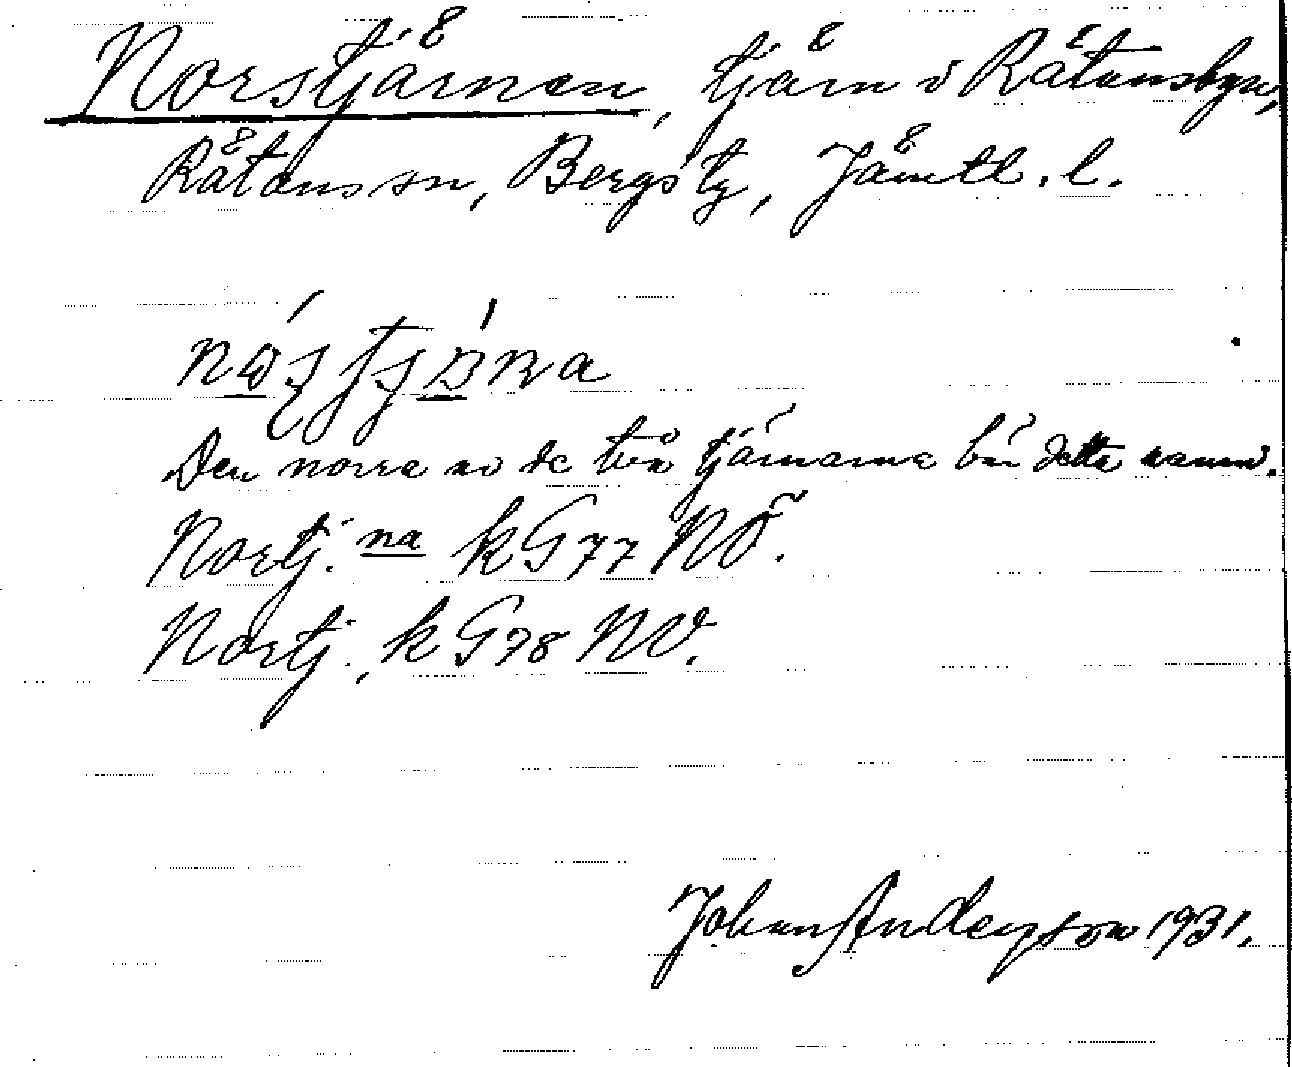 Norstjärnen, tjärn i Rätansbyn,
Rätans sn, Bergs tg, Jämtl. l.
Den norra av de två tjärnarna bär detta namn.
Nortj. na kG77 NÖ.
Nortj., kG78 NV.
Johan Anderson 1931.